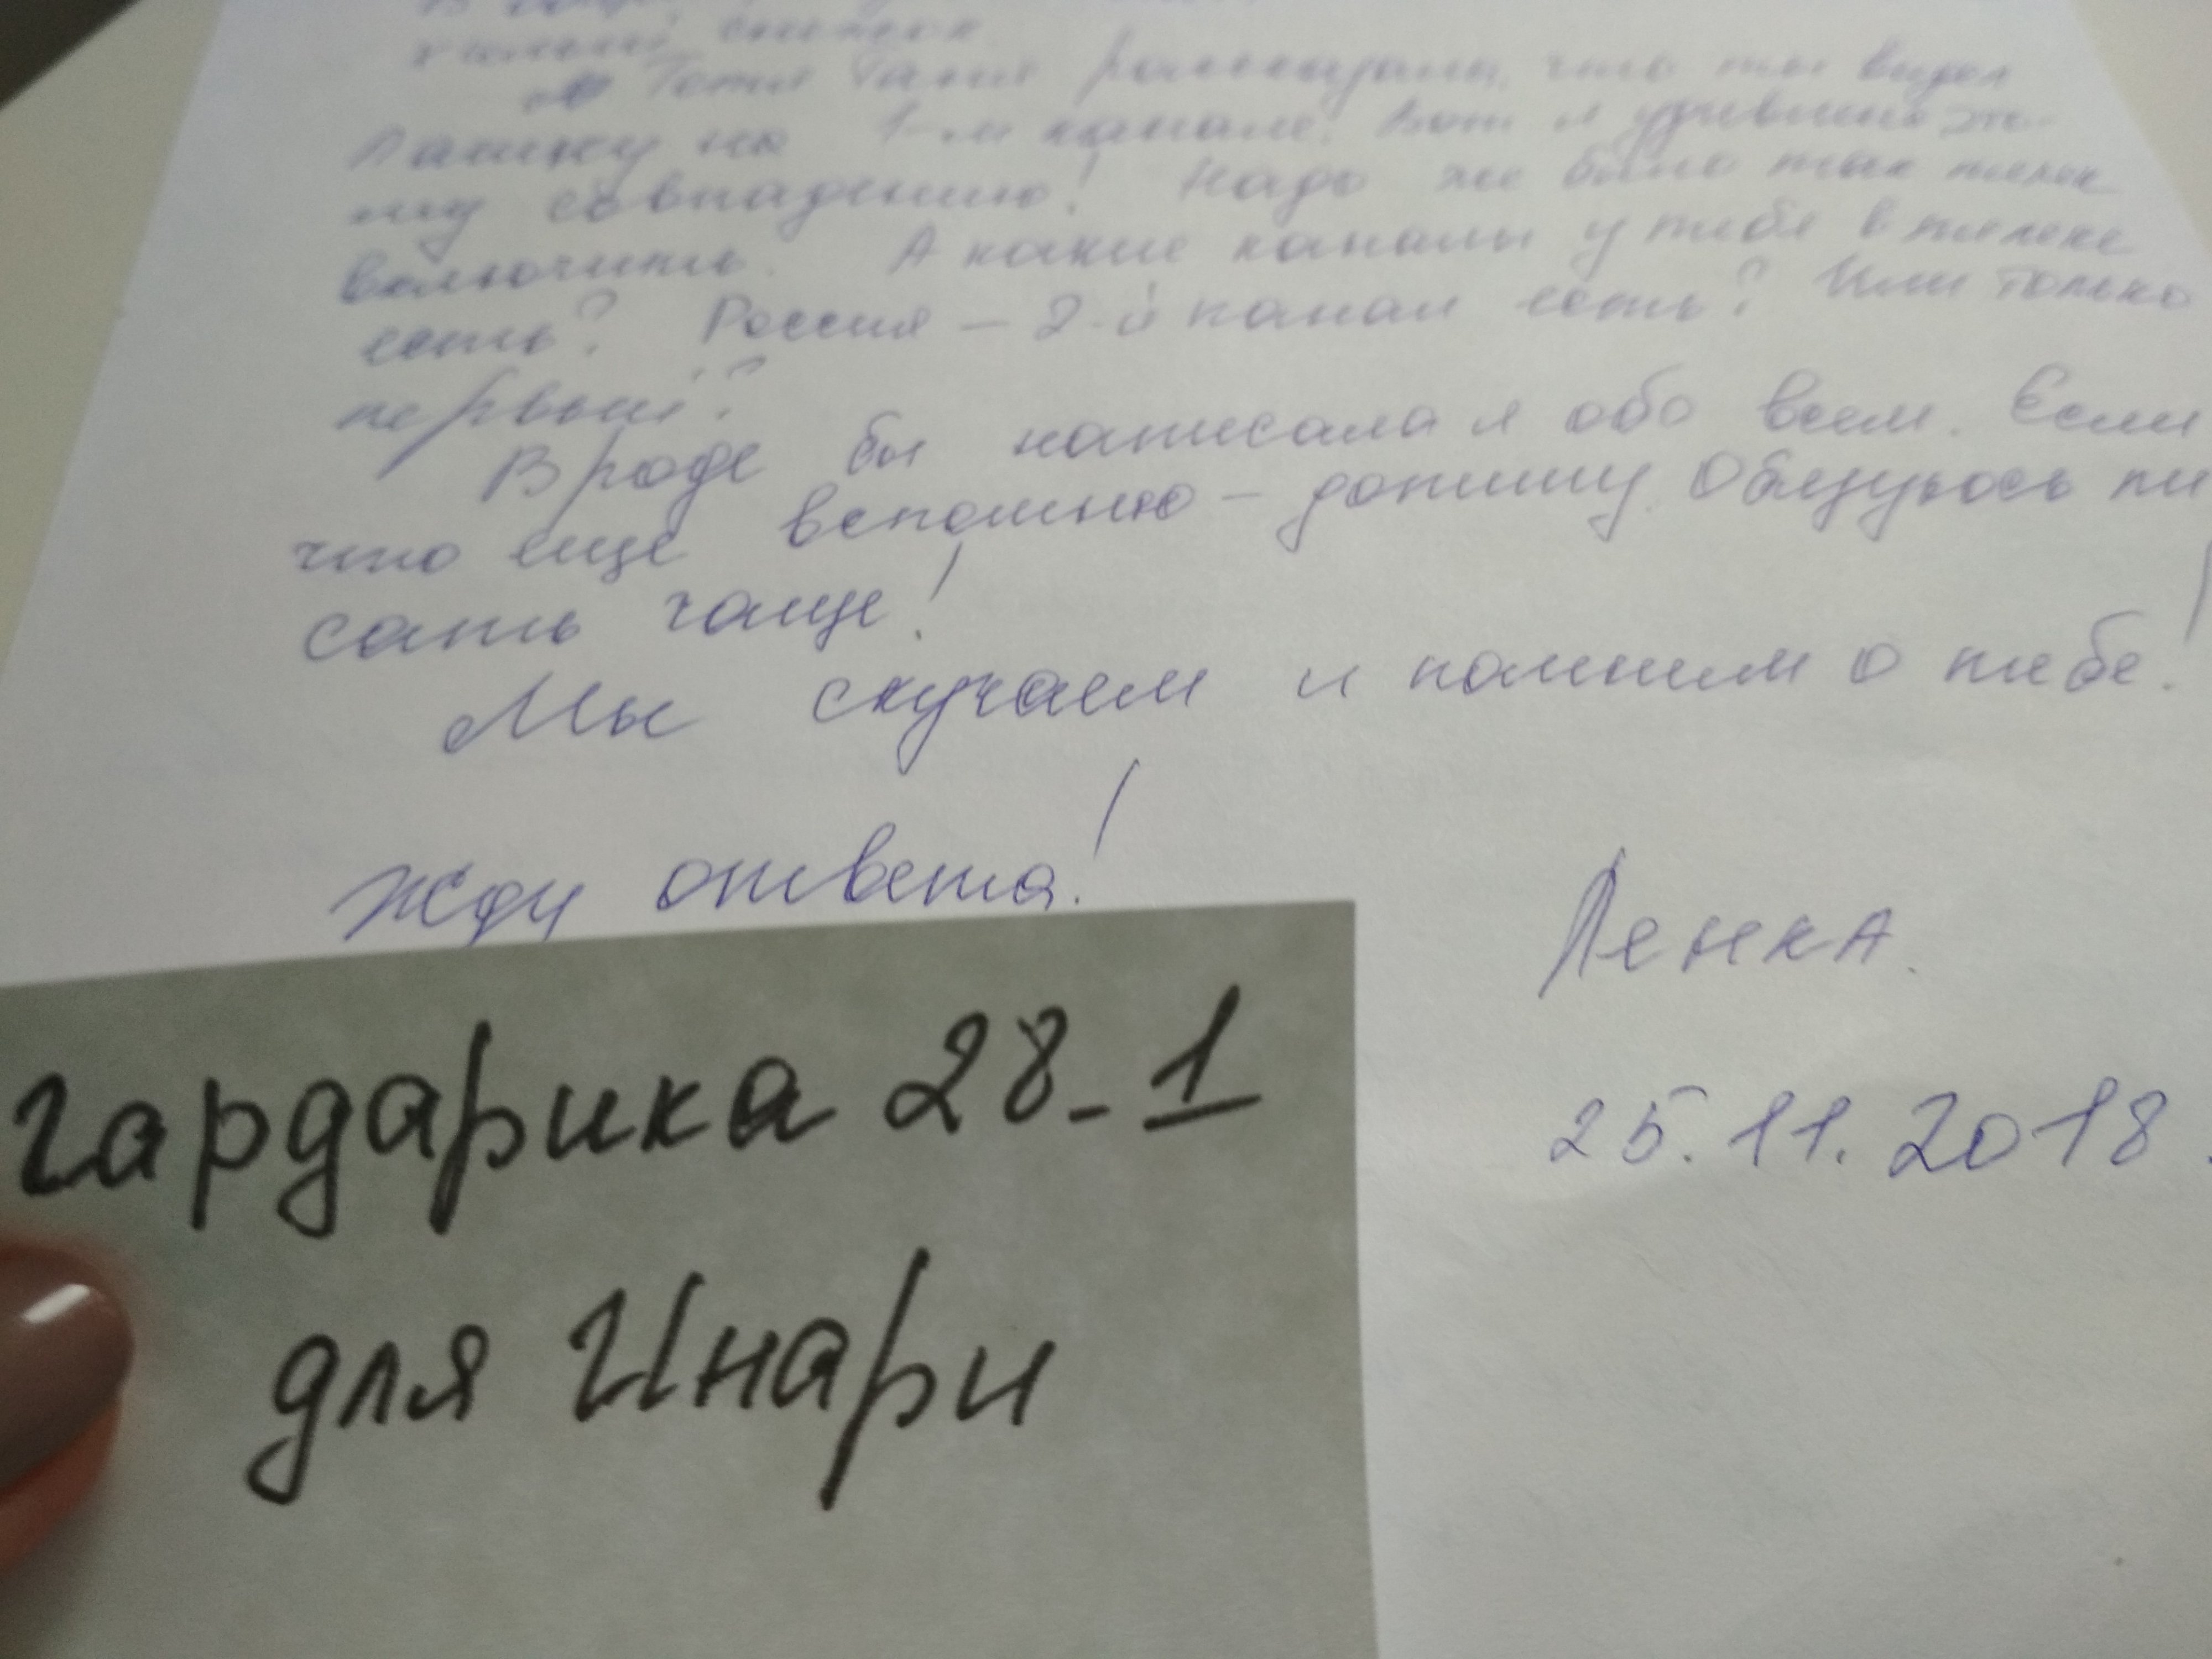 Тётя Таня рассказала, что ты видел
Пашку на 1-м канале! Вот я удивлена это-
му совпадению! Надо же было так телек
включить. А какие каналы у тебя в телеке
есть? Россия – 2-й канал есть? Или только
первый?
Вроде бы написала я обо всем. Если
что еще вспомню – допишу. Обязуюсь пи
сать чаще!
Мы скучаем и помним о тебе!
Жду ответа!
Ленка.
25.11.2018.
гардарика 28-1
для Инари